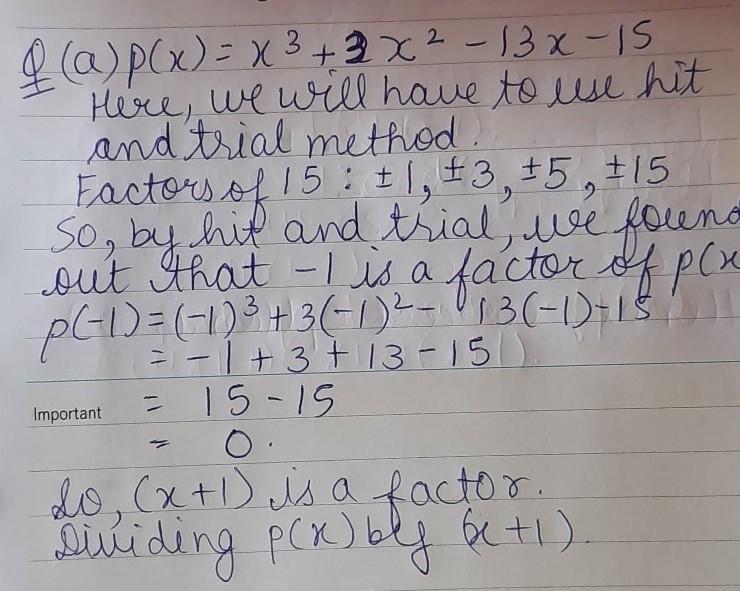 Q (a) p(x) = x³ + 3x² - 13x - 15
Here, we will have to use hit
and trial method.
Factors of 15 : ±1, ±3, ±5, ±15
So, by hit and trial, we found
out that -1 is a factor of p(x
p(-1) = (-1)³ + 3(-1)² - 13(-1) - 15
= -1 + 3 + 13 - 15
Important = 15 - 15
= 0.
So, (x+1) is a factor.
Dividing p(x) by (x+1).